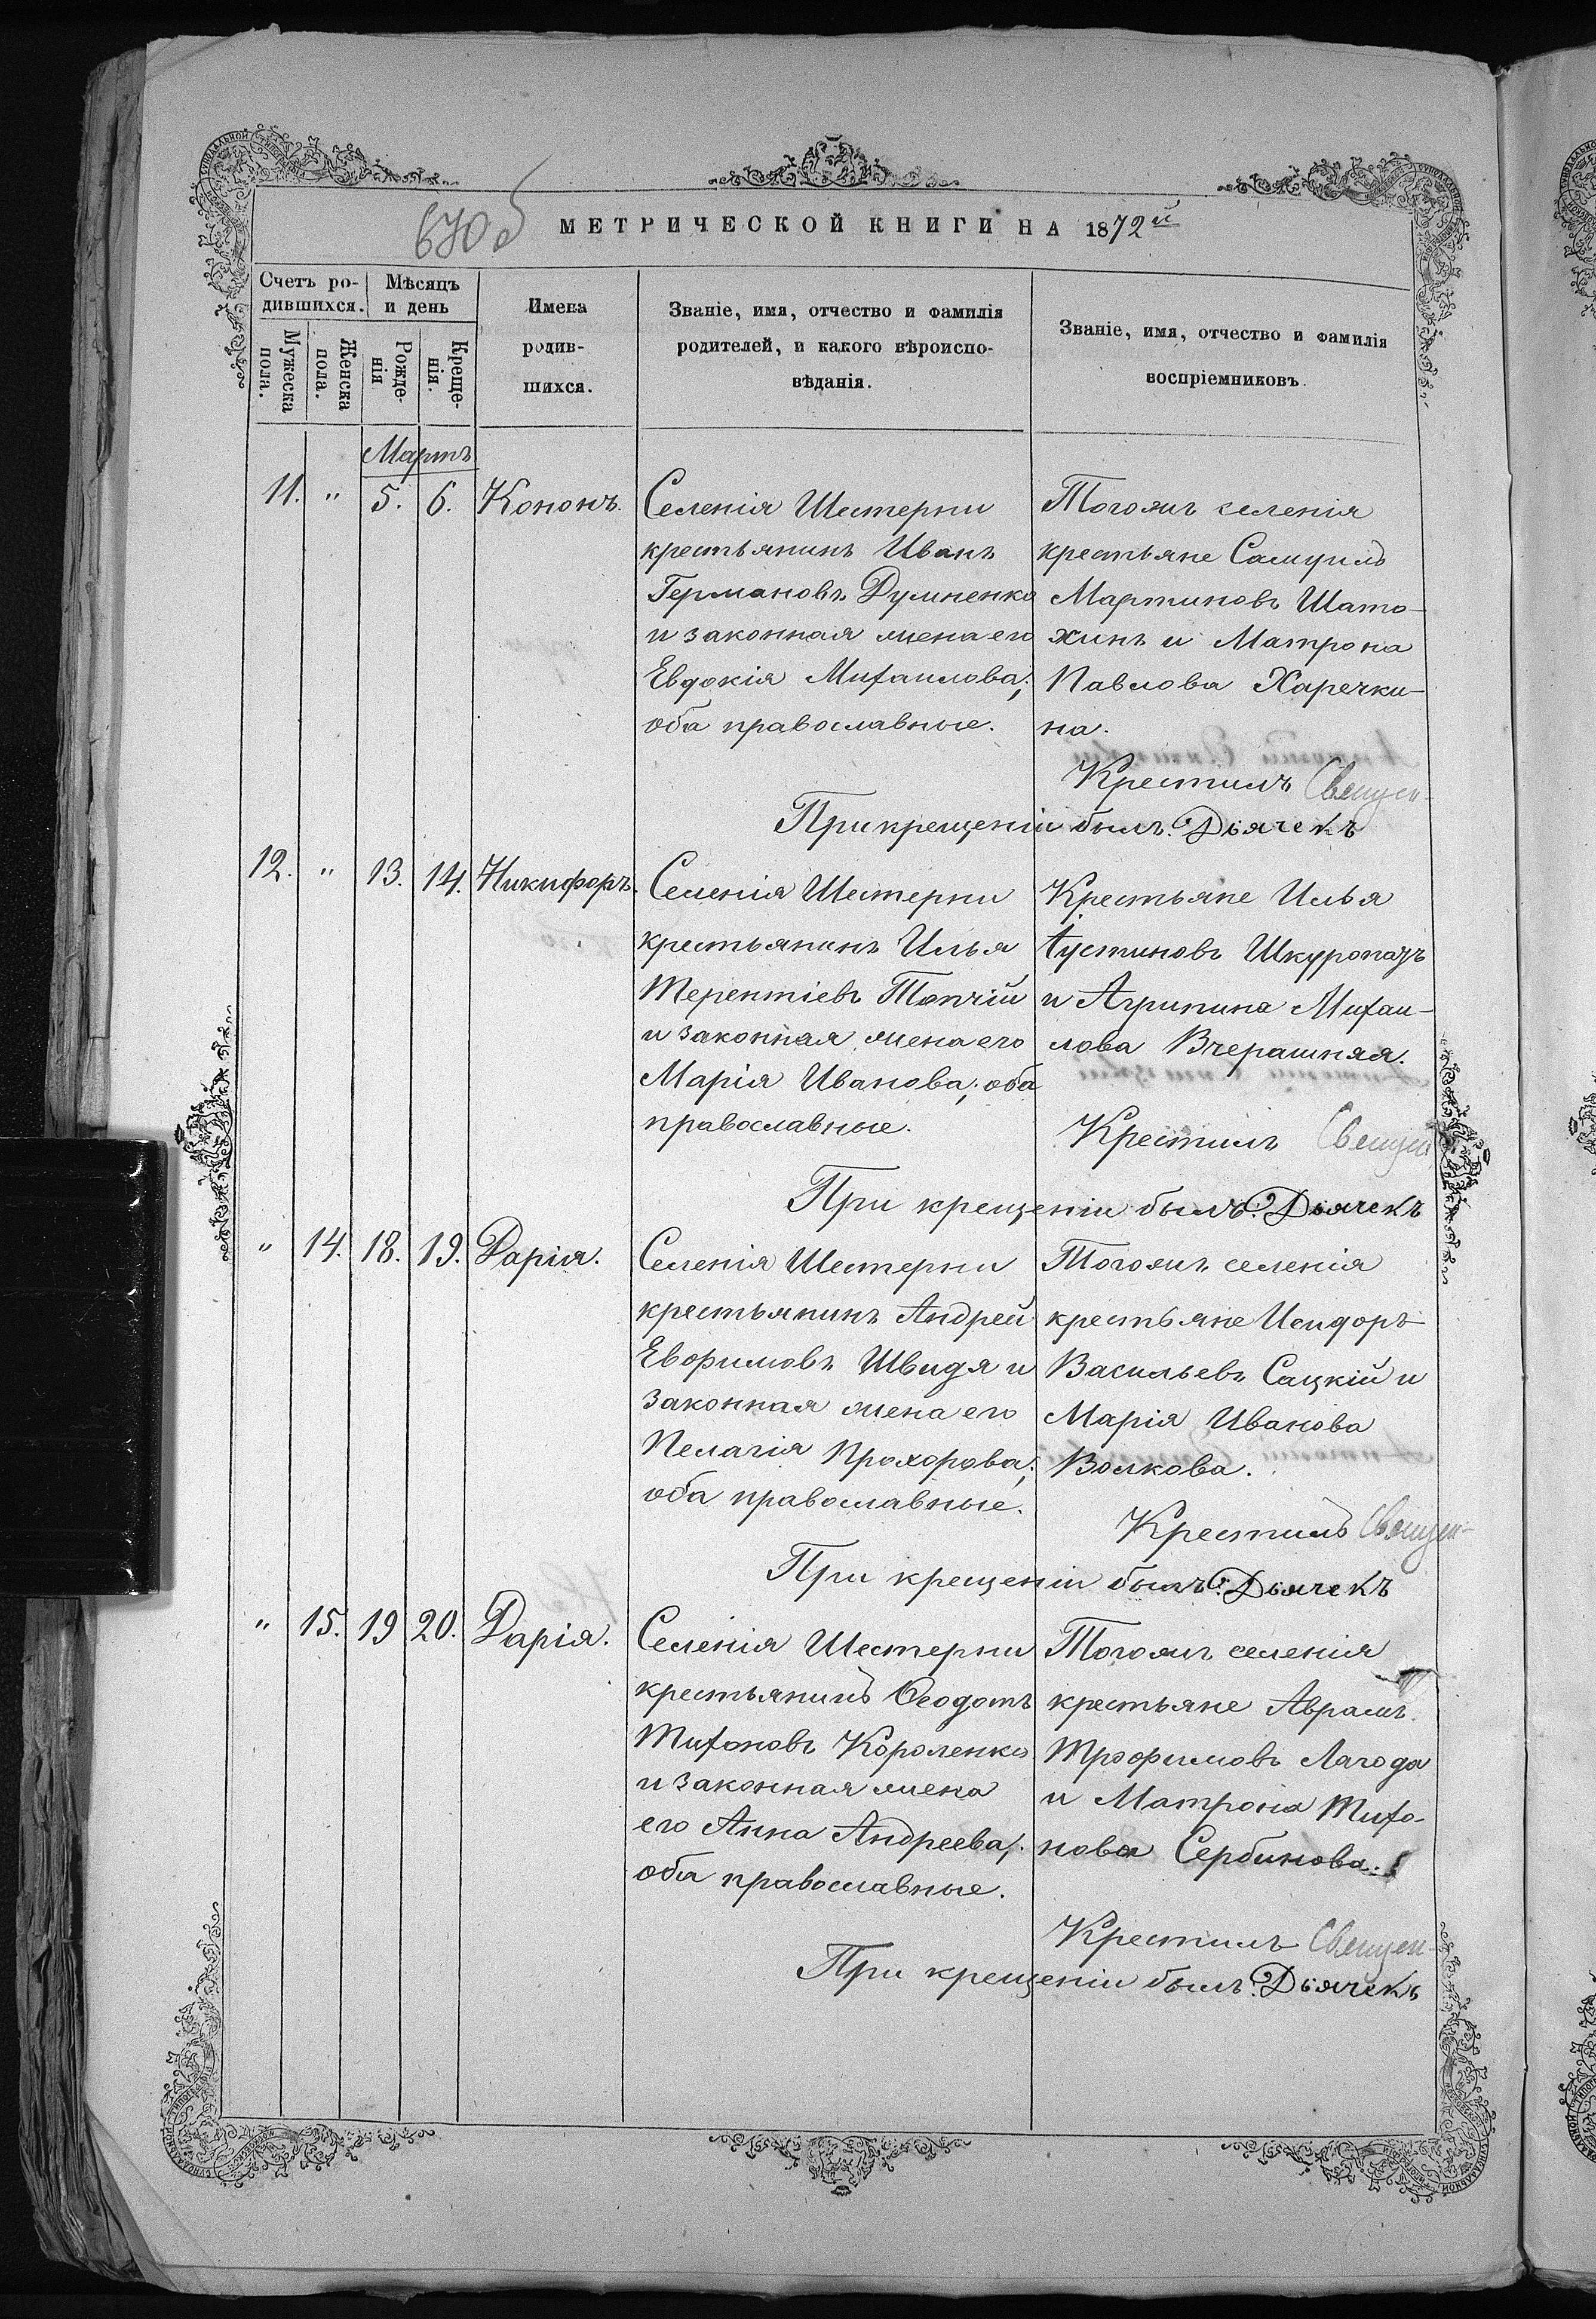 670 об
МЕТРИЧЕСКОЙ КНИГИ НА 1872й
Счетъ ро-
дившихся.
Мѣсяцъ
и день
Мужеска
пола.
Женска
пола.
Рожде-
нія
Креще-
нія.
Имена
родив-
шихся.
Званіе, имя, отчество и фамилія
родителей, и какого вѣроиспо-
вѣданія.
Званіе, имя, отчество и фамилія
воспріемниковъ.
Мартъ
11. " 5. 6. Кононъ.
Селенія Шестерни
крестьянинъ Иванъ
Германовъ Думненко
и законная жена его
Евдокія Михаилова;
оба православные.
Тогожъ селенія
крестьяне Самуилъ
Мартиновъ Шато-
хинъ и Матрона
Павлова Харечки-
на.
Крестилъ Священ-
При крещеніи былъ: Дьячекъ
12. " 13. 14. Никифоръ.
Селенія Шестерни
крестьянинъ Илья
Терентіевъ Топчій
и законная жена его
Марія Иванова; оба
православные.
Крестьяне Илья
Іустиновъ Шкуропатъ
и Агрипина Михаи-
лова Вчерашняя.
Крестилъ Священ
При крещеніи былъ: Дьячекъ
" 14. 18. 19. Дарія.
Селенія Шестерни
крестьянинъ Андрей
Евфимовъ Швидя и
законная жена его
Пелагія Прохорова;
оба православные.
Тогожъ селенія
крестьяне Исидоръ
Васильевъ Сацкій и
Марія Иванова
Волкова.
Крестилъ Священ-
При крещеніи былъ: Дьячекъ
" 15. 19 20. Дарія.
Селенія Шестерни
крестьянинъ Ѳеодотъ
Тихоновъ Короленко
и законная жена
его Анна Андреева;
оба православные.
Тогожъ селенія
крестьяне Аврамъ
Трофимовъ Лагода
и Матрона Тихо-
нова Сербинова.
Крестилъ Священ-
При крещеніи былъ: Дьячекъ